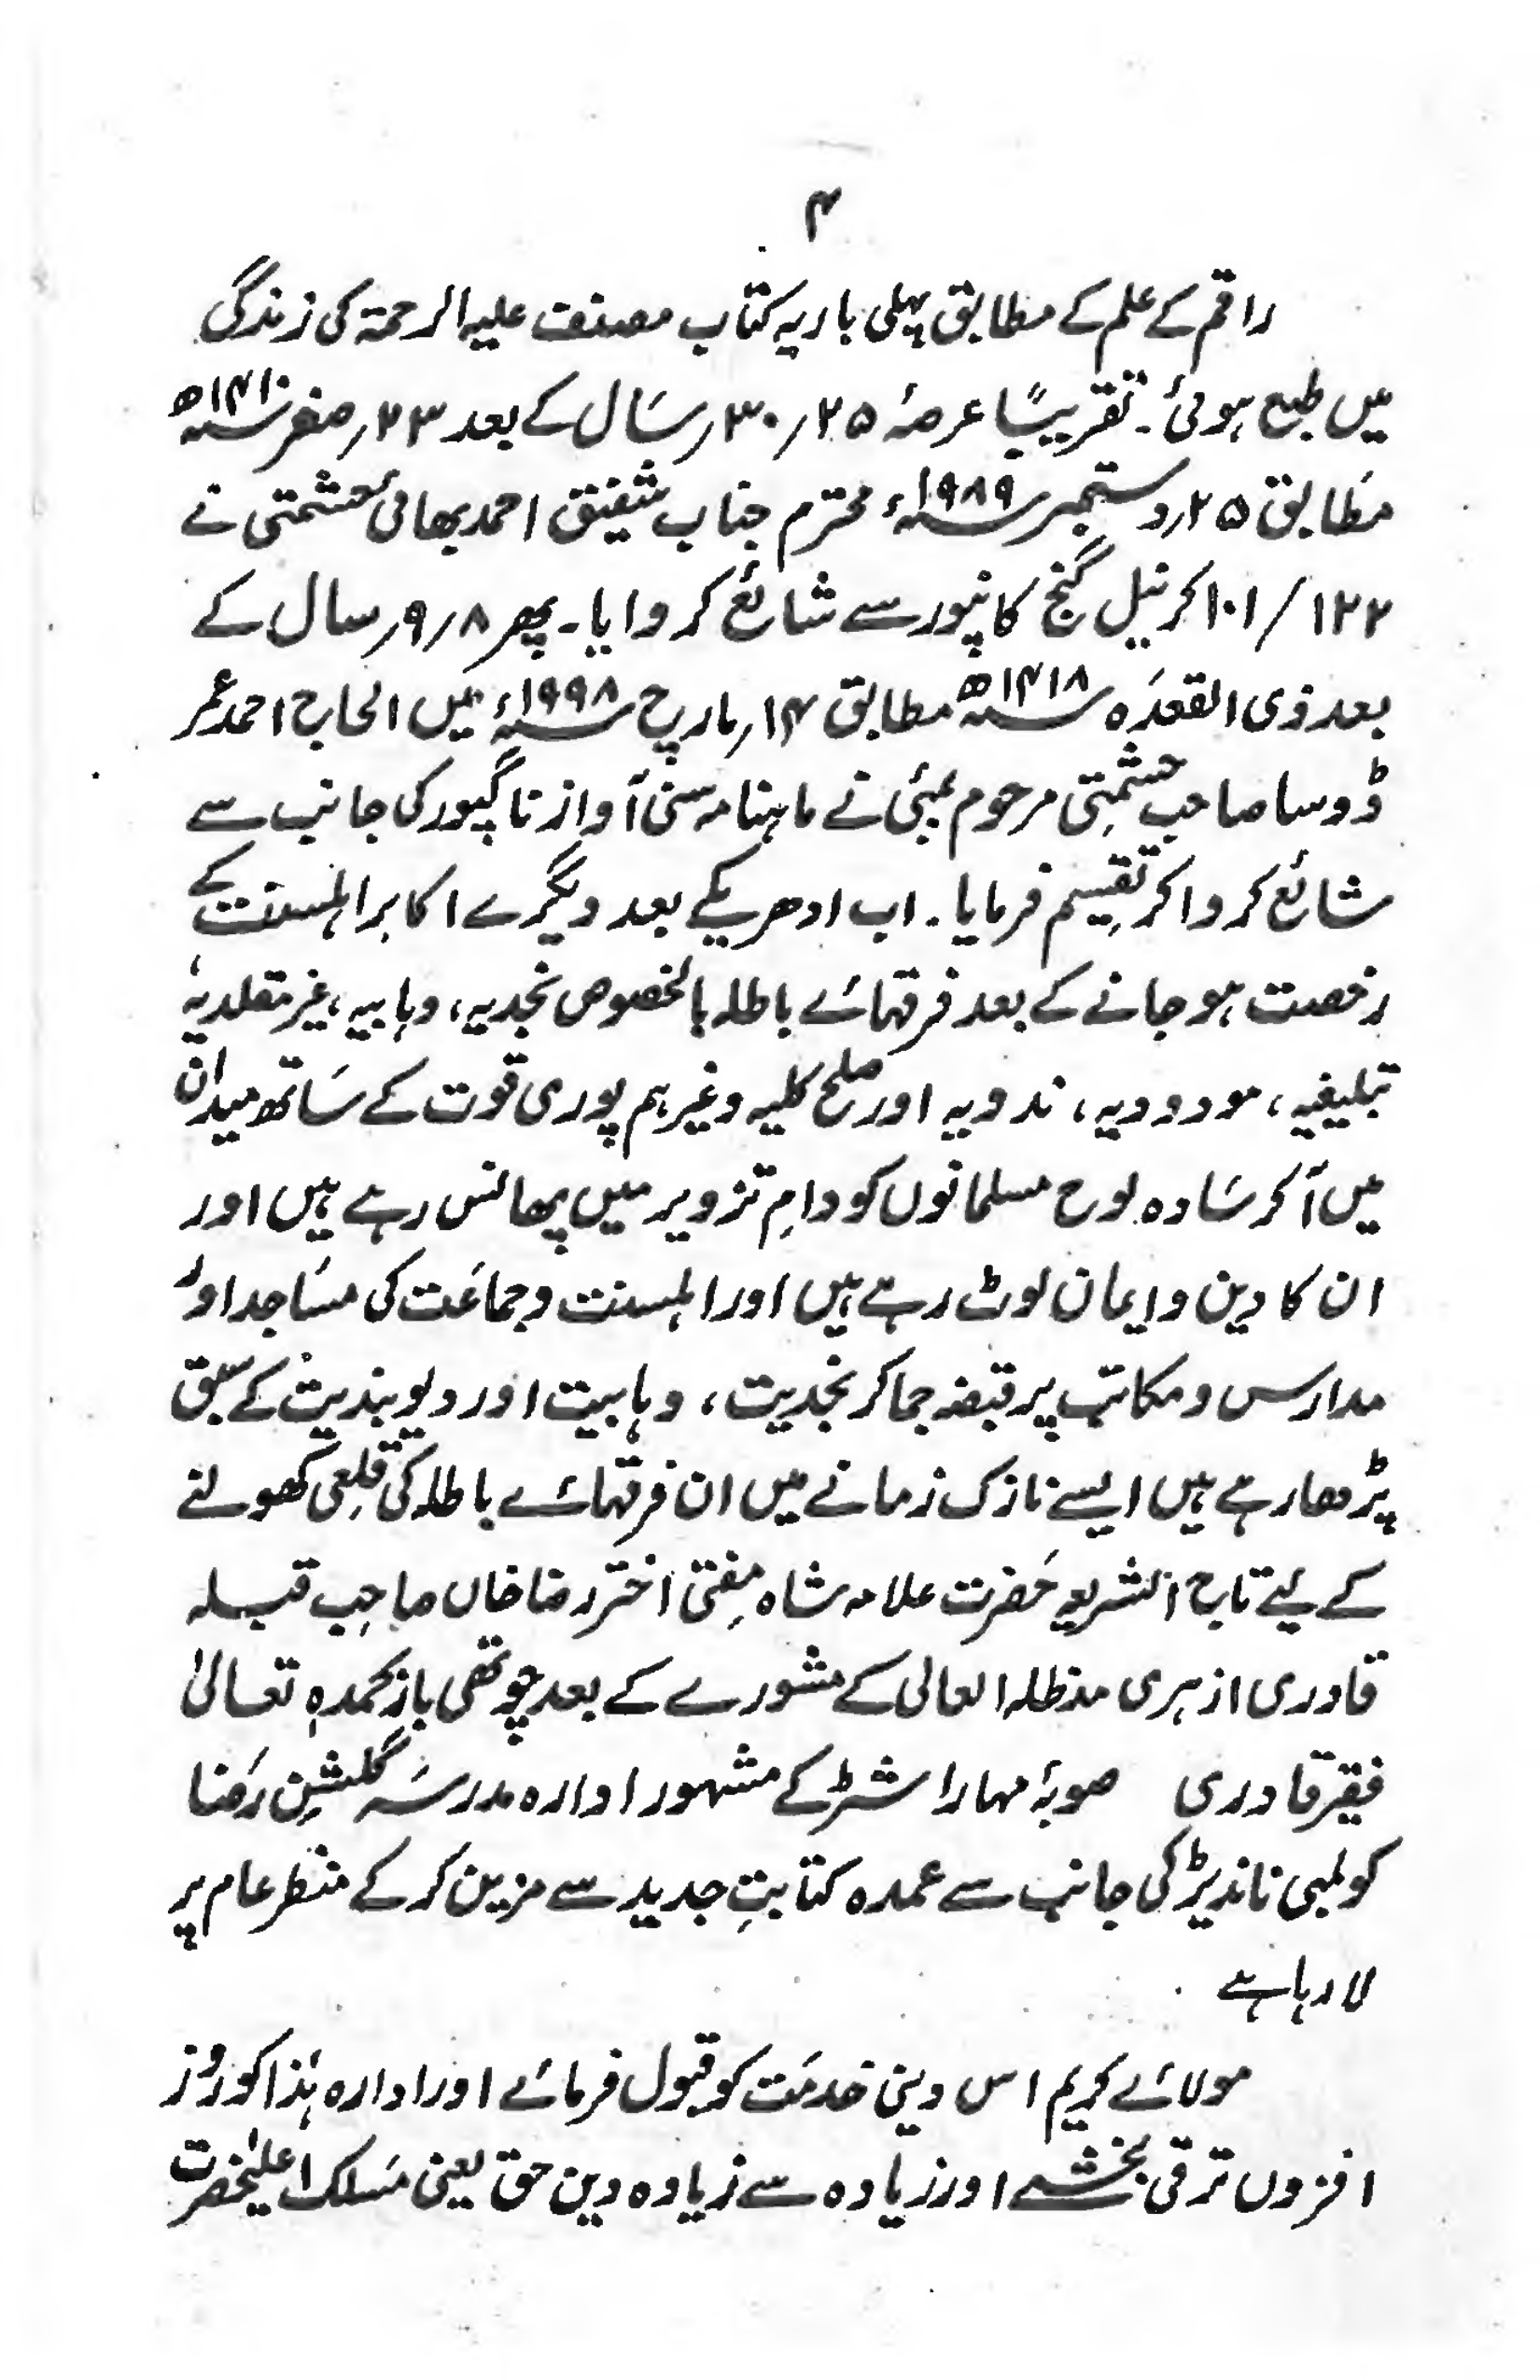 ۴
راقم کے علم کے مطابق پہلی بار یہ کتاب مصنف علیہ الرحمۃ کی زندگی
میں طبع ہوئی۔ تقریبًا عرصۂ ۲۵؍۳۰؍سَال کے بعد ۲۳؍صفر ۱۴۱۰ھ
مطَابق ۲۵؍ستمبر ۱۹۸۹ء محترم جناب شفیق احمد بھائی حشمتی نے
۱۰۱/۱۲۲ کرنیل گنج کانپور سے شائع کروایا۔ پھر ۸؍۹؍سال کے
بعد ذی القعدَہ ۱۴۱۸ھ مطابق ۱۴؍مارچ ۱۹۹۸ء میں الحاج احمد عمر
ڈوسا صاحب حشمتی مرحوم بمبئی نے ماہنامہ سنی آواز ناگپور کی جانب سے
شائع کرواکر تقسیم فرمایا۔ اب ادھر یکے بعد دیگرے اکابر اہلسنت کے
رخصت ہوجانے کے بعد فرقہائے باطلہ بالخصوص نجدیہ، وہابیہ، غیر مقلدیہ،
تبلیغیہ، مودودیہ، ندویہ اور صلح کلیہ وغیرہم پوری قوت کے سَاتھ میدان
میں آکر سَادہ لوح مسلمانوں کو دامِ تزویر میں پھانس رہے ہیں اور
ان کا دین و ایمان لوٹ رہے ہیں اور اہلسنت و جماعَت کی مسَاجد اور
مدارس و مکاتب پر قبضہ جماکر نجدیت، وہابیت اور دیوبندیت کے سبق
پڑھا رہے ہیں ایسے نازک زمانے میں ان فرقہائے باطلہ کی قلِعی کھولنے
کے لیے تاج الشریعہ حَضرت علامہ شاہ مفِتی اختر رضا خاں صاحِب قبلہ
قادری ازہری مدظلہ العالی کے مشورے کے بعد چوتھی بار بحمدہٖ تعالیٰ
فقیر قادری صوبۂ مہاراشٹر کے مشہور ادارہ مدرسَہ گلشنِ رَضا
کولمبی نانڈیڑ کی جانب سے عمدہ کتابتِ جدید سے مزین کرکے منظر عام پر
لارہا ہے
مولائے کریم اس دینی خدمَت کو قبول فرمائے اور ادارہ ہٰذا کو روز
افزوں ترقی بخشے اور زیادہ سے زیادہ دین حق یعنی مَسلک اعلیٰحضرت